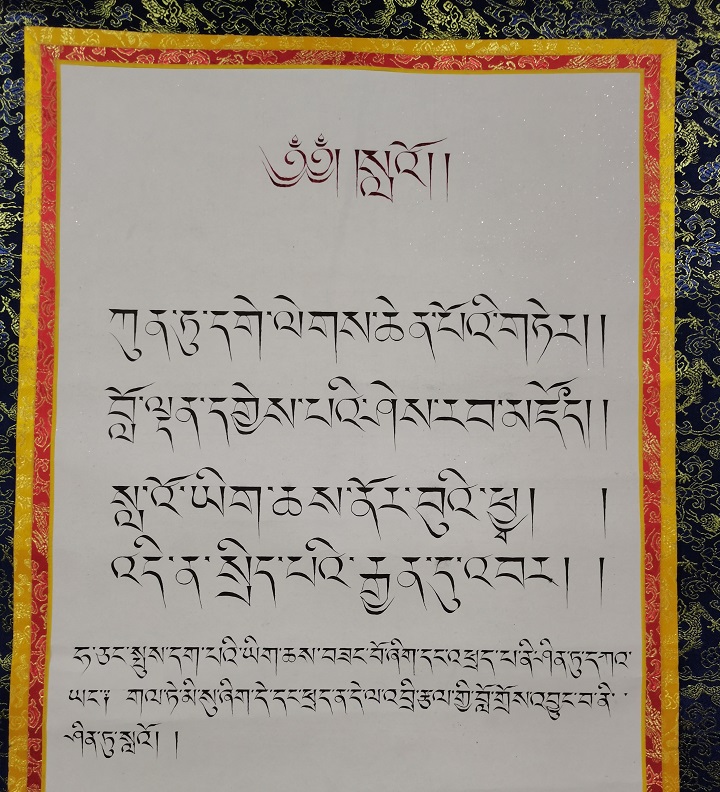 ༄༅། །སླའོ། །
ཀུན་ཏུ་དགེ་ལེགས་ཆེན་པོའི་གཏེར། །
བློ་ལྡན་དགྱེས་པའི་ཤེས་རབ་མཛོད། །
སླ་འོ་ཡིག་ཆས་ནོར་བུའི་ཕྱྭ། །
འདི་ན་སྲིད་པའི་རྒྱན་དུ་འབར། །
ཧ་ཅང་སྤུས་དག་པའི་ཡིག་ཆས་བཟང་པོ་ཞིག་དང་འཕྲད་པ་ནི་ཤིན་ཏུ་དཀའ་
ཡང་༔ གལ་ཏེ་མི་སུ་ཞིག་དེ་དང་ཕྲད་ན་དེ་ལ་འབྲི་རྩལ་གྱི་བློ་གྲོས་འབྱུང་བ་ནི་
ཤིན་ཏུ་སླའོ། །